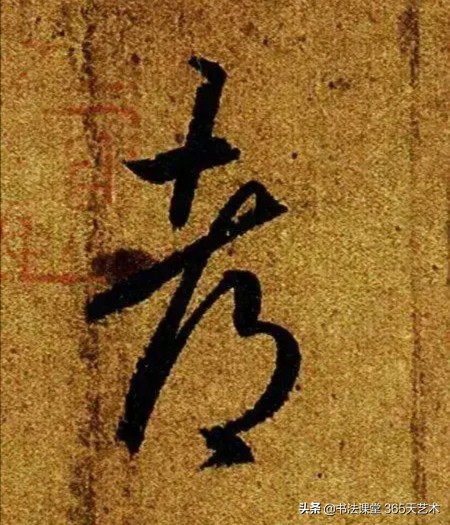 考
头条 @书法课堂 365天艺术